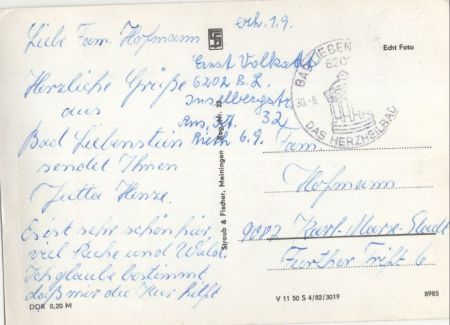 Liebe Fam. Hofmann
erh. 1.9.
Ernst Volkstdt
6202 B.L.
Inselbergstr.
32
9.
Herzliche Grüße
aus
Bad Liebenstein
sendet Ihnen
Jutta Henze.
Es ist sehr schön hier,
viel Ruhe und Wald.
Ich glaube bestimmt
daß mir die Kur hilft
DDR 0,20 M
Straub & Fischer, Meiningen
Echt Foto
BAD LIEBEN
620
30.-8.
DAS HERZHEILBAD
Fam.
Hofmann
Karl-Marx-Stadt
Further Trift 6
V 11 50 S 4/82/3019
8985